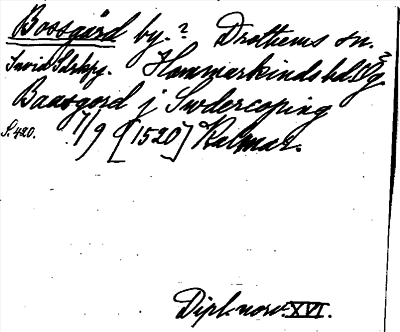 Boosgård by.? Drothems sn.
Invid Sdrkpg. Hammarkinds hd. Ög?
Baasgord j Swdercoping
S. 420. 17/9 [1520] Kalmar.
Dipl. norv. XVI.